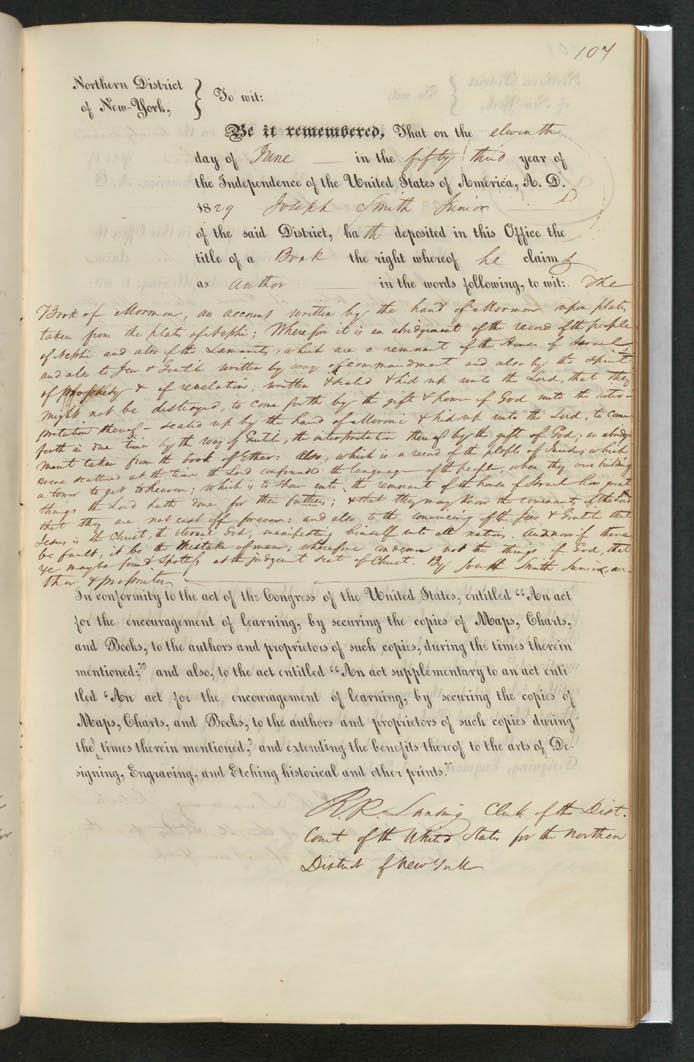 107
Northern District
of New-York, } To wit:
Be it remembered, That on the elventh
day of June — in the fifty third year of
the Independence of the United States of America, A. D.
1829 Joseph Smith Junior
of the said District, hath deposited in this Office the
title of a Book the right whereof he claims
as author — in the words following, to wit: The
Book of Mormon; an account written by the hand of Mormon upon plates
taken from the plates of Nephi; Wherefore it is an abridgement of the record of the people
of Nephi and also of the Lamanites, which are a remnant of the House of Israel
and also to Jew & Gentile written by way of commandment and also by the spirit
of prophesy & of revelation, written & sealed & hid up unto the Lord, that they
might not be destroyed, to come forth by the gift & power of God unto the inter-
pretation thereof – sealed up by the hand of Moroni & hid up unto the Lord, to come
forth in due time by the way of Gentile, the interpretation thereof by the gift of God; an abridg-
ment taken from the book of Ether: Also, which is a record of the people of Jared, which
were scattered at the time the Lord confounded the language of the people, when they were building
a tower to get to Heaven; which is to shew unto the remnant of the house of Israel how great
things the Lord hath done for their fathers; & that they may know the covenants of the Lord
that they are not cast off forever: and also to the convincing of the Jew & Gentile that
Jesus is the Christ, the eternal God, manifesting himself unto all nations. And now if there
be fault, it be the mistake of man; wherefore condemn not the things of God, that
ye may be found spotless at the judgment seat of Christ. By Joseph Smith Junior, au-
thor & proprietor
In conformity to the act of the Congress of the United States, entitled “An act
for the encouragement of learning, by securing the copies of Maps, Charts,
and Books, to the authors and proprietors of such copies, during the times therein
mentioned;” and also, to the act entitled “An act supplementary to an act enti
tled ‘An act for the encouragement of learning, by securing the copies of
Maps, Charts, and Books, to the authors and proprietors of such copies during
the times therein mentioned,’ and extending the benefits thereof to the arts of De-
signing, Engraving, and Etching historical and other prints.”
R.R. Lansing Clerk of the Dist.
Court of the United States for the Northern
District of New York